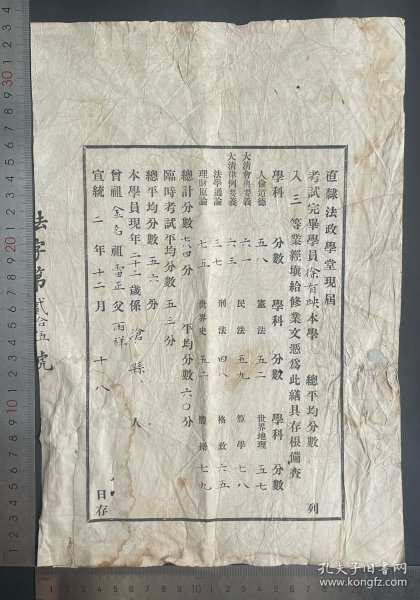 直隸法政學堂現屆
考試完畢學員徐有映本學 總平均分數 列
入三等業經塡給修業文憑爲此繕具存根備查
學科 分數 學科 分數 學科 分數
人倫道德 五八 憲法 五二 世界地理 五七
大淸會典要義 六一 民法 五九 算學 七八
大淸律例要義 六三 刑法 四八 格致 六五
法學通論 三七 世界史 五二 體操 七九
理財原論 七五
總計分數 七八四分 平均分數六〇分
臨時考試平均分數五三分
總平均分數五六分
本學員現年二十二歲係滄縣人
曾祖金名祖雷正父雨祥
宣統二年十二月十八日存
法字第貳拾五號
孔夫子旧书网
www.kongfz.com